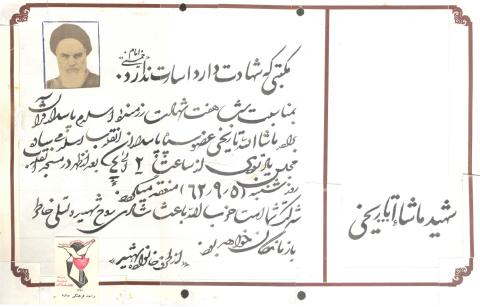 مکتبی که شهادت دارد اسارت ندارد
امام خمینی
بمناسبت شب هفت شهادت رزمنده اسلام پاسدار قرآن
برادر ماشاالله تاریخی عضو سپاه پاسداران انقلاب اسلامی ساوه
مجلس یادبودی از ساعت ۲ الی ۴ بعدازظهر در مسجد انقلاب
روز شنبه (۶۲/۹/۵) منعقد میگردد
شرکت شما امت حزب الله باعث شادی روح شهید و تسلی خاطر
بازماندگان خواهد بود
«از طرف خانواده شهید»
شهید ماشاءالله تاریخی
واحد فرهنگی ساوه